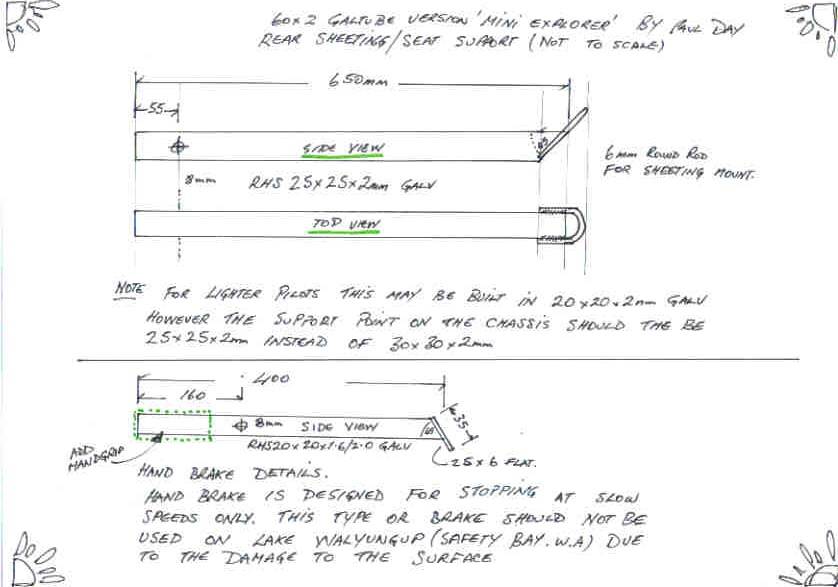 60x2 GALTUBE VERSION 'MINI EXPLORER' BY PAUL DAY
REAR SHEETING/SEAT SUPPORT (NOT TO SCALE)
650mm
55
45
SIDE VIEW
6mm ROUND ROD
FOR SHEETING MOUNT.
8mm RHS 25x25x2mm GALV
TOP VIEW
NOTE FOR LIGHTER PILOTS THIS MAY BE BUILT IN 20x20x2mm GALV
HOWEVER THE SUPPORT POINT ON THE CHASSIS SHOULD THE BE
25x25x2mm INSTEAD OF 30x30x2mm
400
160
35
8mm SIDE VIEW
RHS20x20x1.6/2.0 GALV
ADD
HANDGRIP
25x6 FLAT.
HAND BRAKE DETAILS.
HAND BRAKE IS DESIGNED FOR STOPPING AT SLOW
SPEEDS ONLY. THIS TYPE OR BRAKE SHOULD NOT BE
USED ON LAKE WALYUNGUP (SAFETY BAY. W.A) DUE
TO THE DAMAGE TO THE SURFACE